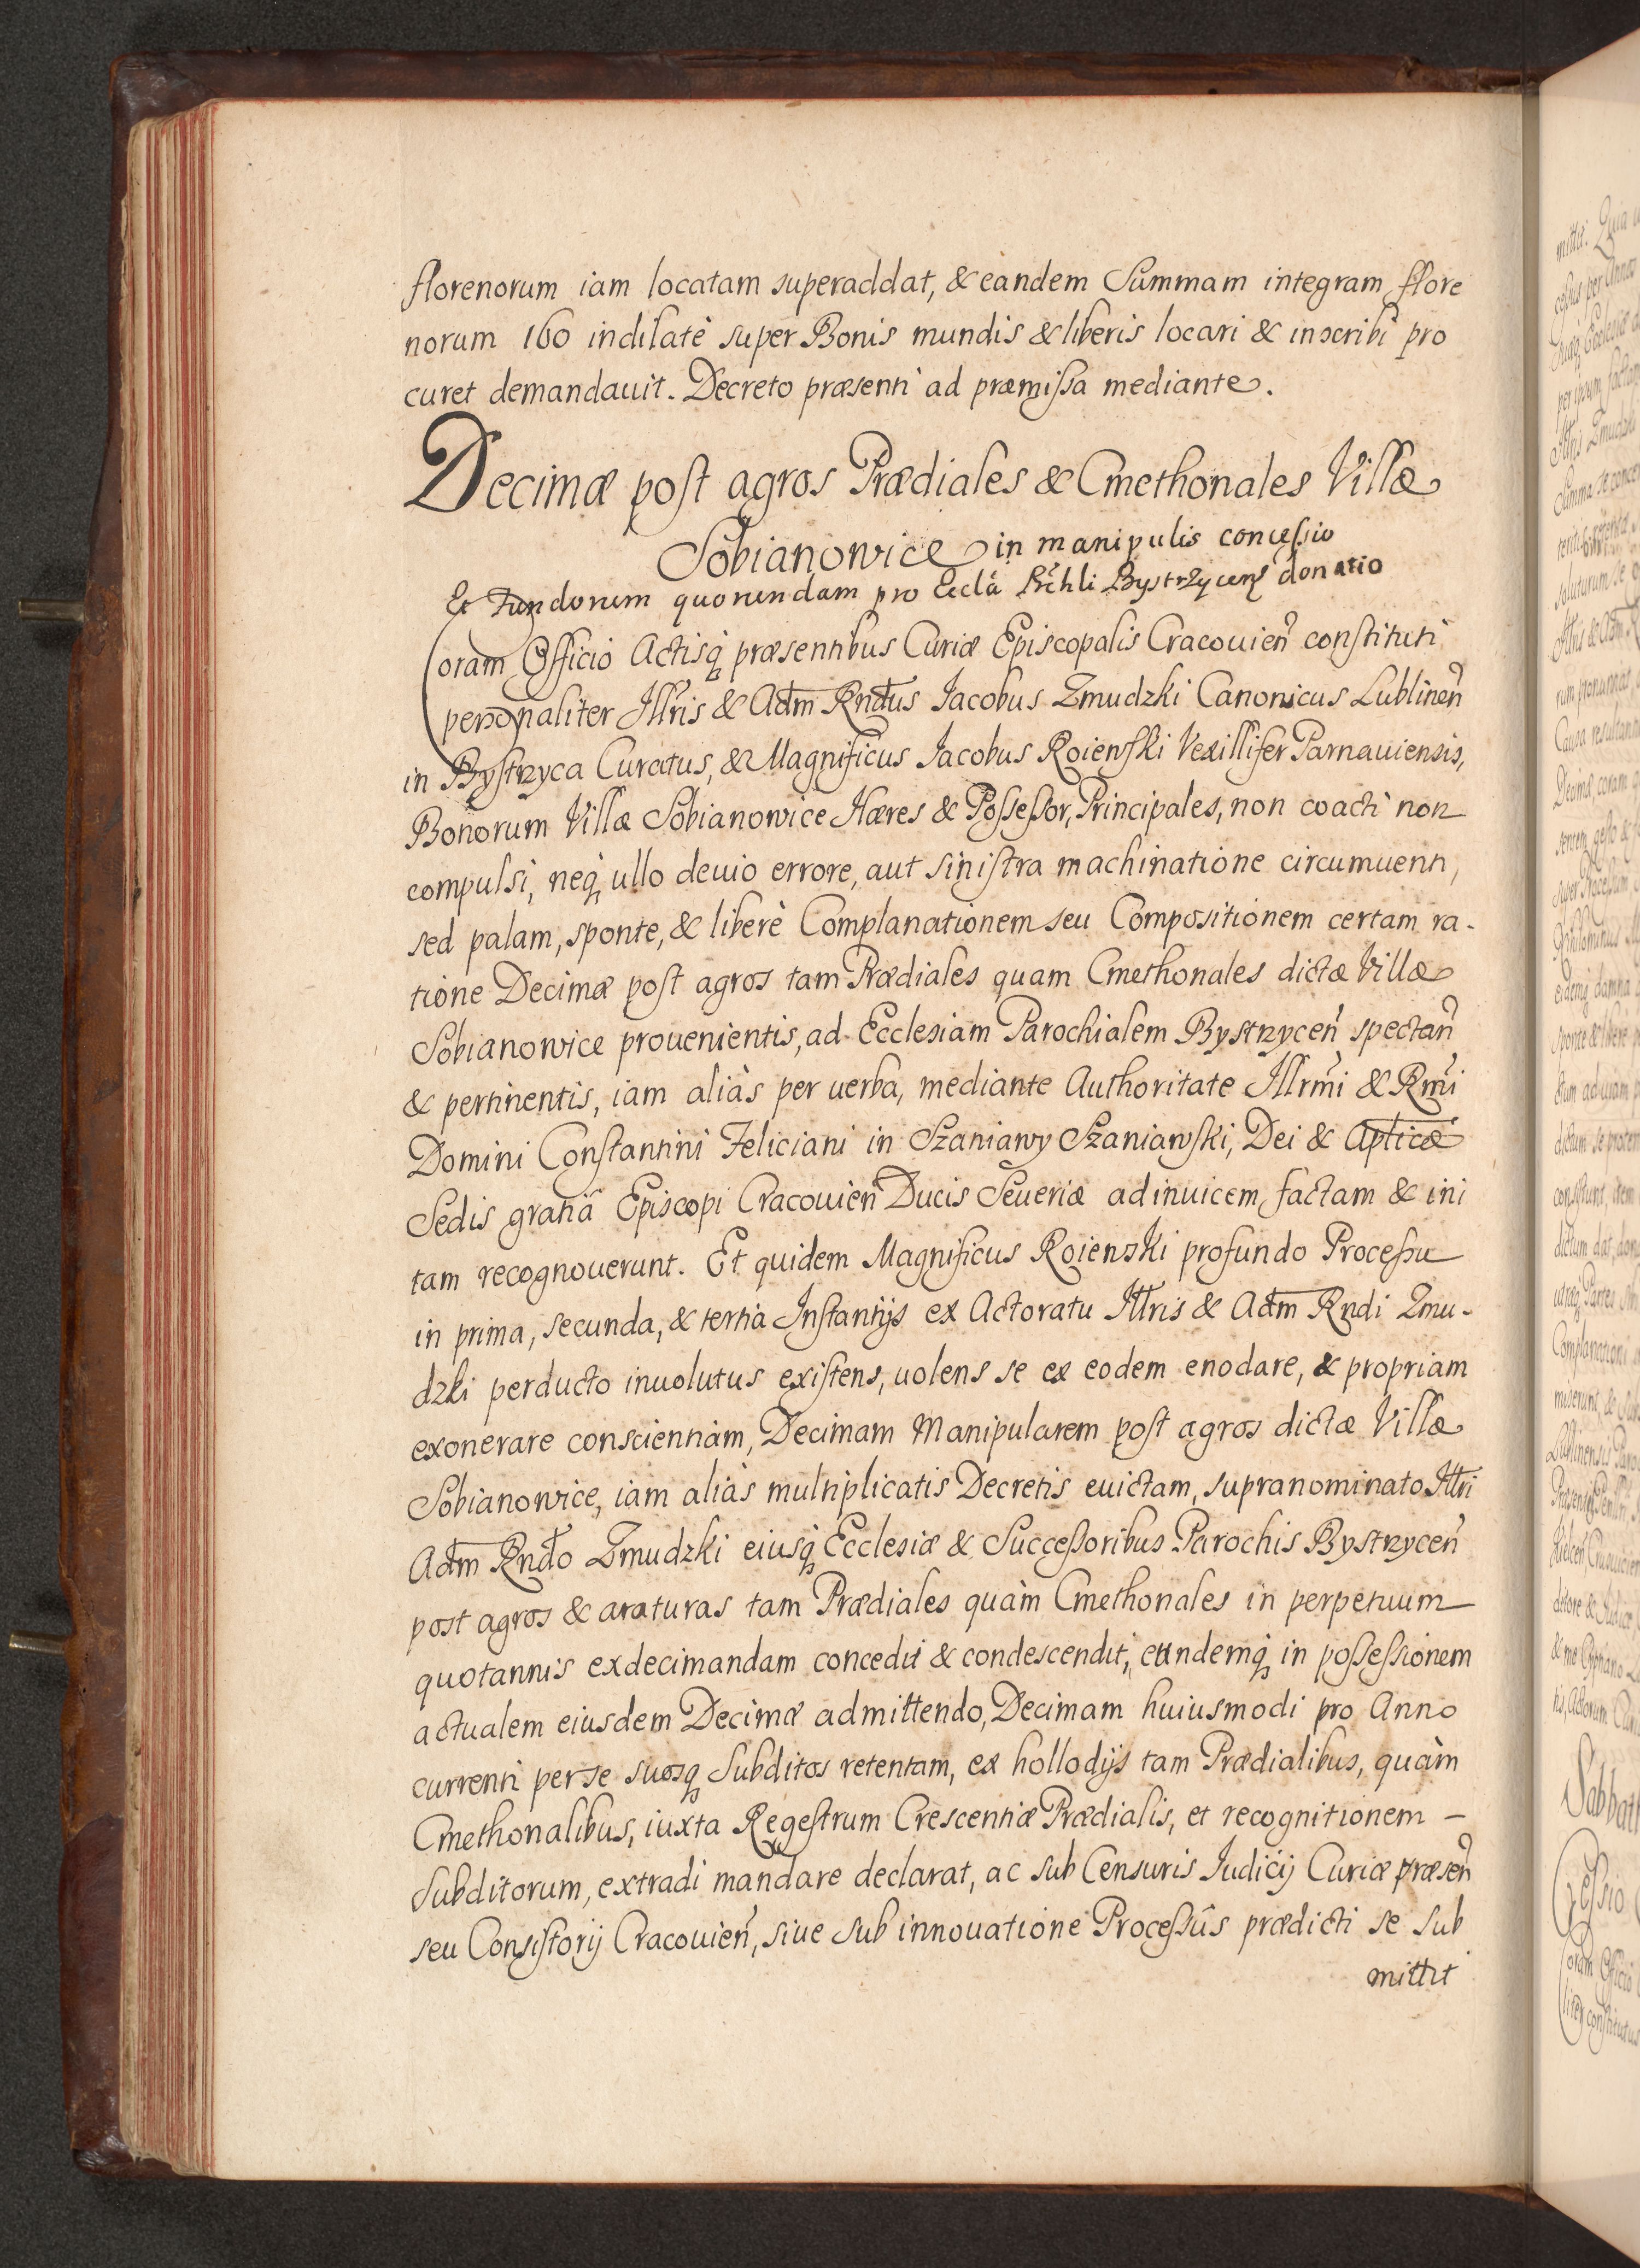 florenorum iam locatam superaddat, & eandem Summam integram flore
norum 160 indilatè super Bonis mundis & liberis locari & inscribi pro
curet demandauit. Decreto præsenti ad præmissa mediante.
Decimæ post agros Prædiales & Cmethonales Villæ
Sobianowice in manipulis concessio
Et Fundorum quorundam pro Eccla Rchli Bystrzycen donatio
Coram Officio Actisq præsentibus Curiæ Episcopalis Cracouien constituti
personaliter Illris & Adm Rndus Jacobus Zmudzki Canonicus Lublinen
in Bystrzyca Curatus, & Magnificus Jacobus Roienski Vexillifer Parnauiensis,
Bonorum Villæ Sobianowice Hæres & Possessor, Principales, non coacti non
compulsi, neq ullo deuio errore, aut sinistra machinatione circumuenti,
sed palam, sponte, & liberè Complanationem seu Compositionem certam ra-
tione Decimæ post agros tam Prædiales quam Cmethonales dictæ Villæ
Sobianowice prouenientis, ad Ecclesiam Parochialem Bystrzycen spectan
& pertinentis, iam aliàs per uerba, mediante Authoritate Illrmi & Rmi
Domini Constantini Feliciani in Szaniawy Szaniawski, Dei & Apticæ
Sedis gratiâ Episcopi Cracouien Ducis Seueriæ adinuicem factam & ini
tam recognouerunt. Et quidem Magnificus Roienski profundo Processu
in prima, secunda, & tertia Instantijs ex Actoratu Illris & Adm Rndi Zmu-
dzki perducto inuolutus existens, uolens se ex eodem enodare, & propriam
exonerare conscientiam, Decimam Manipularem post agros dictæ Villæ
Sobianowice, iam aliàs multiplicatis Decretis euictam, supranominato Illri
Adm Rndo Zmudzki eiusq Ecclesiæ & Successoribus Parochis Bystrzycen
post agros & araturas tam Prædiales quàm Cmethonales in perpetuum
quotannis exdecimandam concedit & condescendit, eundemq in possessionem
actualem eiusdem Decimæ admittendo, Decimam huiusmodi pro Anno
currenti per se suosq Subditos retentam, ex hollodijs tam Prædialibus, quàm
Cmethonalibus, iuxta Regestrum Crescentiæ Prædialis, et recognitionem –
Subditorum, extradi mandare declarat, ac sub Censuris Iudicij Curiæ præsen
seu Consistorij Cracouien, siue sub innouatione Processûs prædicti se sub
mittit